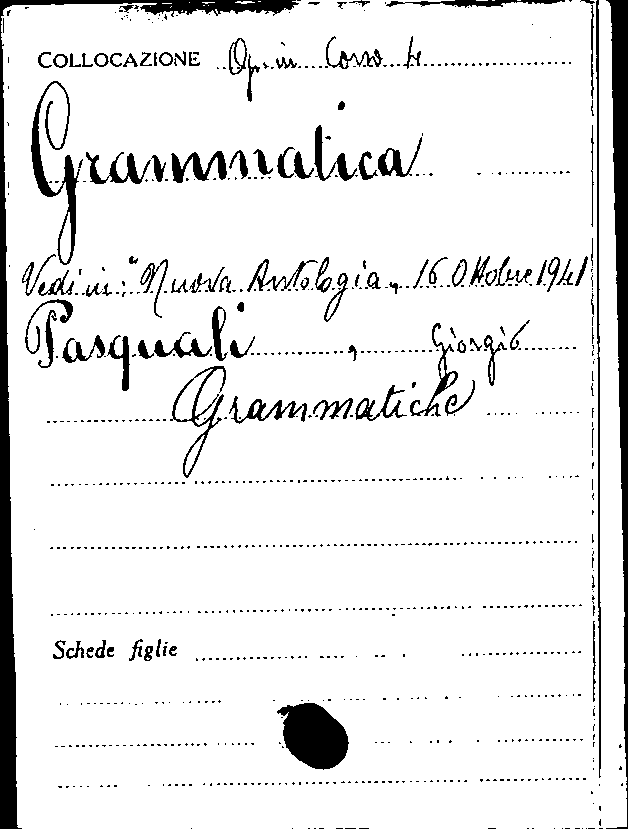 COLLOCAZIONE Op. in Corso 4
Grammatica
Vedi in: "Nuova Antologia„ 16 Ottobre 1941
Pasquali, Giorgio
Grammatiche
Schede figlie